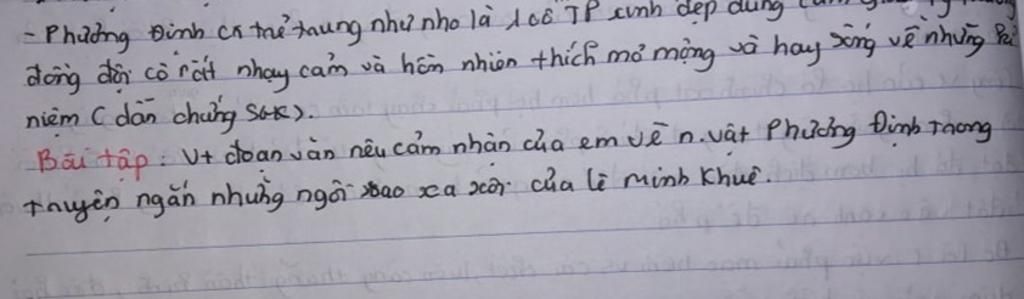 - Phương Định cx trẻ trung như nho là 1 cô TP xinh đẹp dũng
đồng đội cô rất nhạy cảm và hồn nhiên thích mơ mộng và hay sống về những
niệm ( dẫn chứng SGK ).
Bài tập : V+ đoạn văn nêu cảm nhận của em về n.vật Phương Định trong
truyện ngắn những ngôi sao xa xôi của lê minh Khuê.